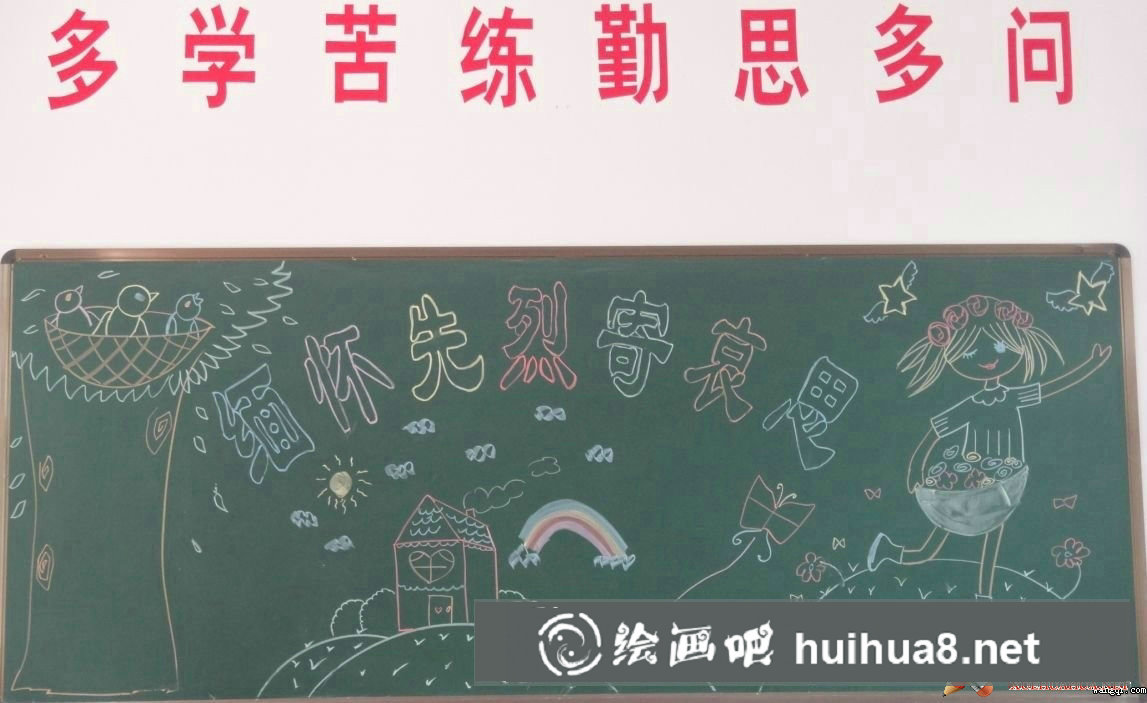 多学苦练勤思多问
缅怀先烈寄哀思
绘画吧 huihua8.net
wangqr.com